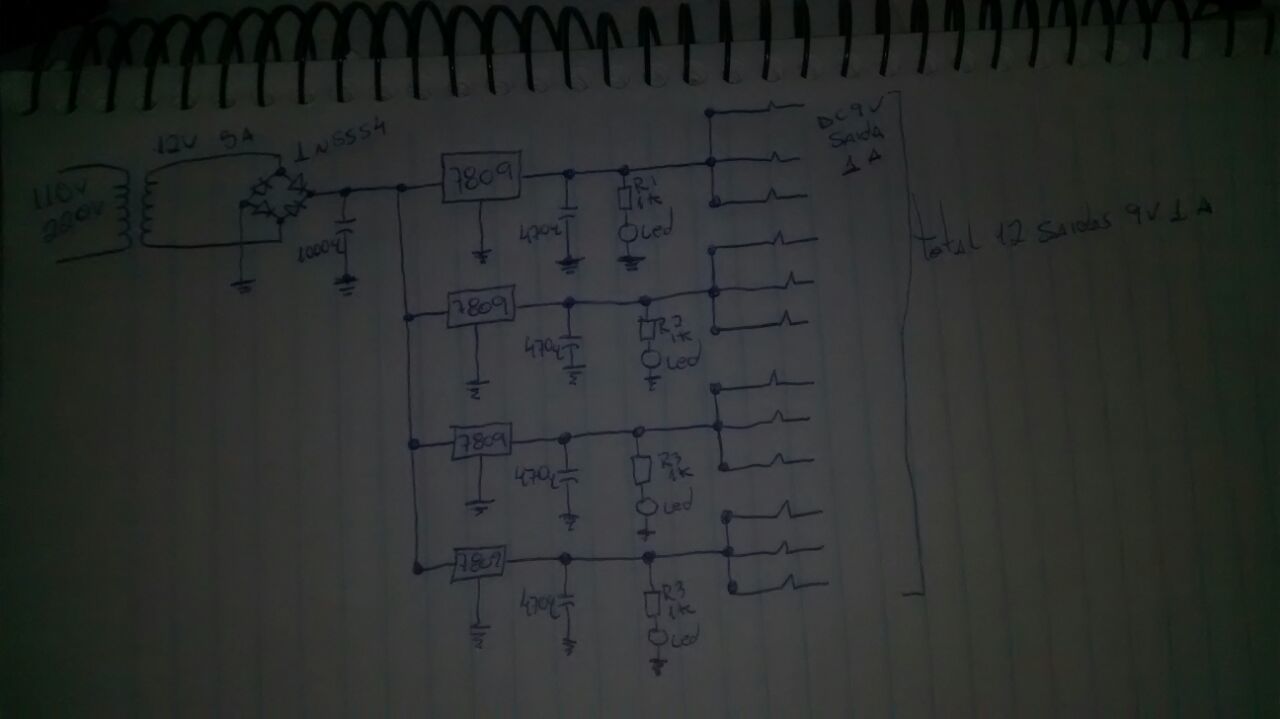 12V 5A
1N5554
110V
220V
1000u
7809
470u
R1
1K
Led
DC 9V
Saida
1 A
Total 12 Saidas 9V 1 A
7809
470u
R2
1K
Led
7809
470u
R3
1K
Led
7809
470u
R3
1K
Led